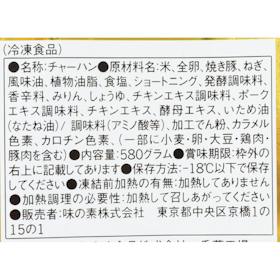 (冷凍食品)
●名称:チャーハン●原材料名:米、全卵、焼き豚、ねぎ、
風味油、植物油脂、食塩、ショートニング、発酵調味料、
香辛料、みりん、しょうゆ、チキンエキス調味料、ポーク
エキス調味料、チキンエキス、酵母エキス、いため油
(なたね油)/調味料(アミノ酸等)、加工でん粉、カラメル
色素、カロチン色素、(一部に小麦・卵・大豆・鶏肉・
豚肉を含む)●内容量:580グラム●賞味期限:枠外の
右上に記載してあります●保存方法:-18℃以下で保存
してください●凍結前加熱の有無:加熱してありません
●加熱調理の必要性:加熱して召しあがってください
●販売者:味の素株式会社 東京都中央区京橋1の
15の1